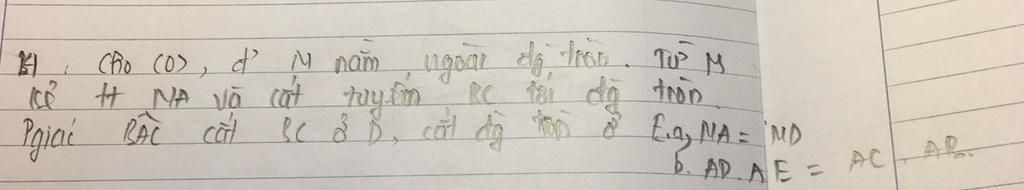 B1. Cho (O), đ' M nằm ngoài đg tròn. Từ M
kẻ tt MA và cát tuyến BC tới đg tròn.
Pgiác BAC cắt BC ở D, cắt đg tròn ở E. a, MA = MD
b. AD. AE = AC . AB.